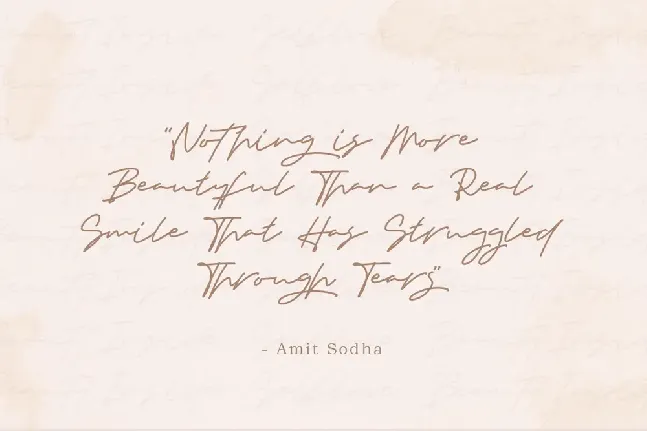 "Nothing is More
Beautyful Than a Real
Smile That Has Struggled
Through Tears"
- Amit Sodha